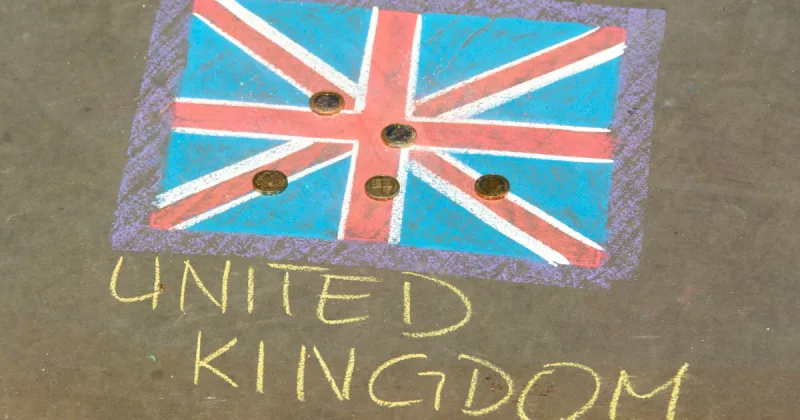 UNITED
KINGDOM